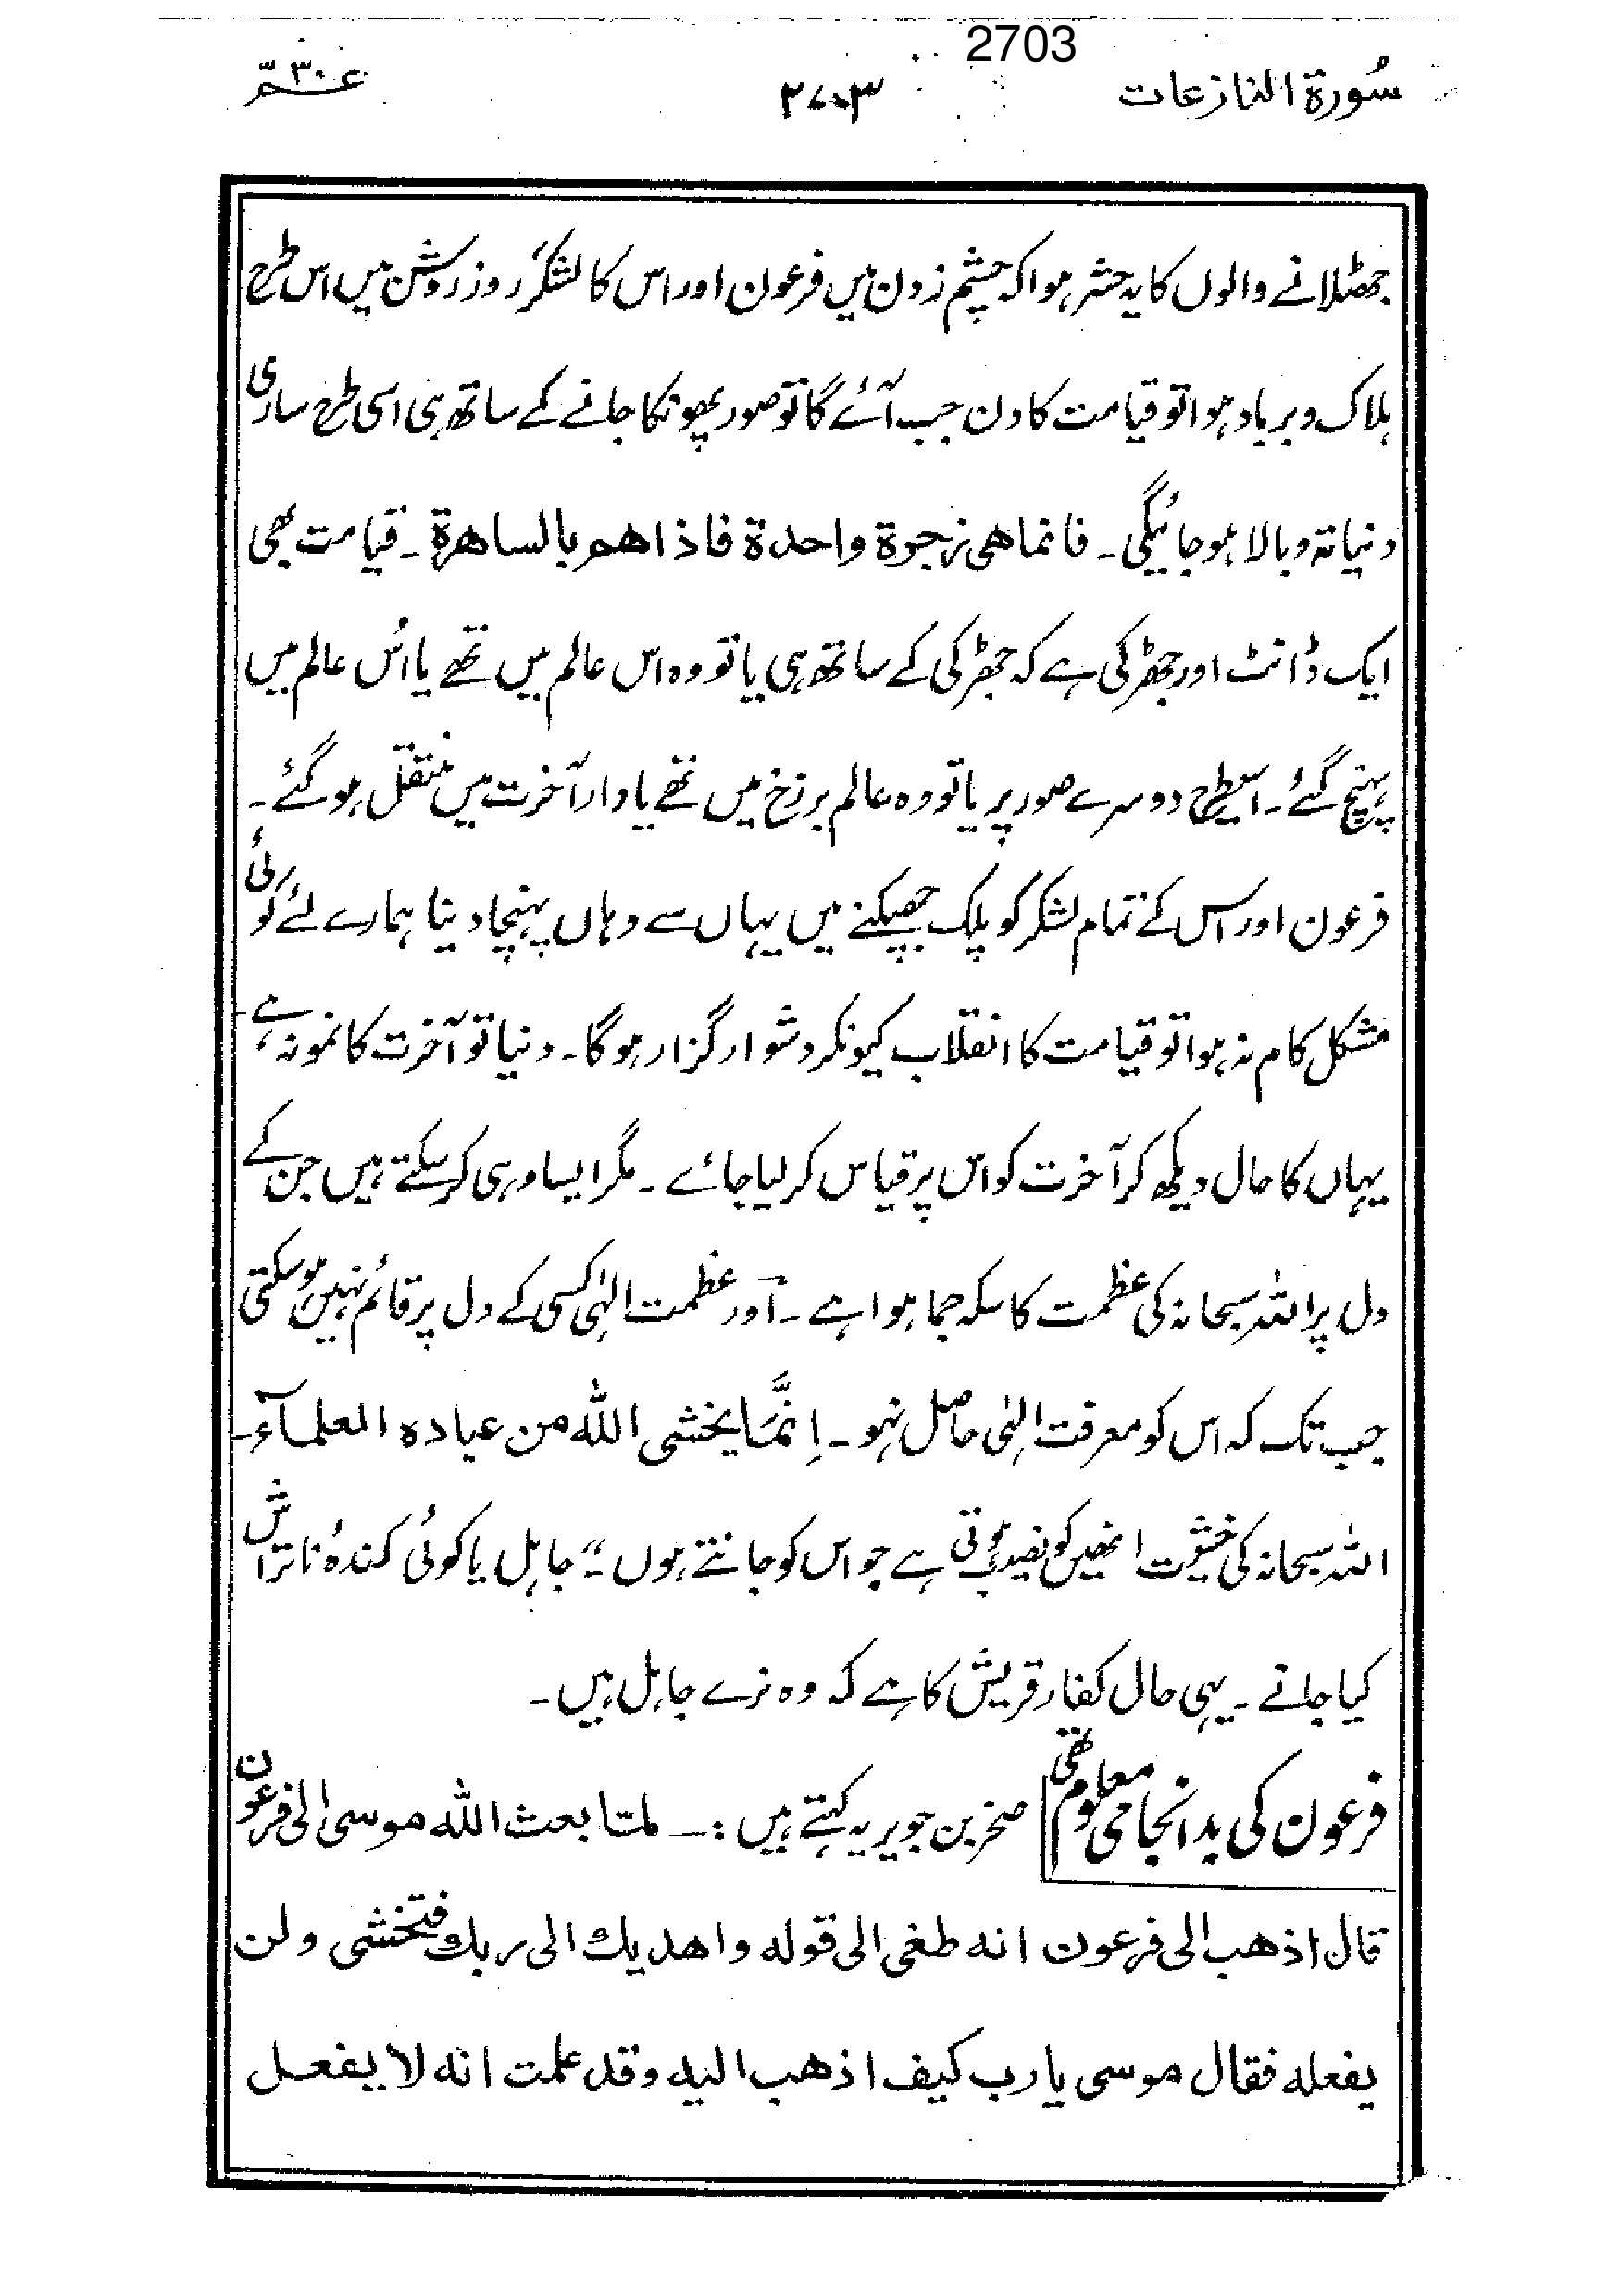 2703
سُورة النازعات ٢٧٠٣ عمّ ٣٠
جھٹلانے والوں کا یہ حشر ہوا کہ چشم زدن میں فرعون اور اس کا لشکر روز روشن میں اس طرح
ہلاک و برباد ہوا تو قیامت کا دن جب آئے گا تو صور پھونکا جانے کے ساتھ ہی اسی طرح ساری
دنیا تہ و بالا ہو جائیگی ۔ فانما هى زجرة واحدة فاذا هم بالساهرة ۔ قیامت بھی
ایک ڈانٹ اور جھڑکی ہے کہ جھڑکی کے ساتھ ہی یا تو وہ اس عالم میں تھے یا اُس عالم میں
پہنچ گئے ۔ اسیطرح دوسرے صور پر یا تو وہ عالم برزخ میں تھے یا دار آخرت میں منتقل ہو گئے ۔
فرعون اور اس کے تمام لشکر کو پلک جھپکنے میں یہاں سے وہاں پہنچا دینا ہمارے لئے کوئی
مشکل کام نہ ہوا تو قیامت کا انقلاب کیونکر دشوار گزار ہوگا ۔ دنیا تو آخرت کا نمونہ ہے،
یہاں کا حال دیکھ کر آخرت کو اس پر قیاس کر لیا جائے ۔ مگر ایسا وہی کر سکتے ہیں جن کے
دل پر اللہ سبحانہ کی عظمت کا سکہ جما ہوا ہے ۔ اور عظمت الہٰی کسی کے دل پر قائم نہیں ہو سکتی
جب تک کہ اس کو معرفت الہٰی حاصل نہو ۔ اِنَّمَا یخشی اللّٰه من عباده العلمآء ۔
اللہ سبحانہ کی خشیت انھیں کو نصیب ہوتی ہے جو اس کو جانتے ہوں ۔" جاہل یا کوئی کندۂ ناتراش
کیا جانے ۔ یہی حال کفار قریش کا ہے کہ وہ نرے جاہل ہیں ۔
فرعون کی بد انجامی معلوم تھی صخر بن جویریہ کہتے ہیں :۔ لما بعث الله موسى الى فرعون
قال اذهب الى فرعون انه طغى الى قوله واهديك الى ربك فتخشى ولن
يفعله فقال موسى يا رب كيف اذهب اليه وقد علمت انه لا يفعل